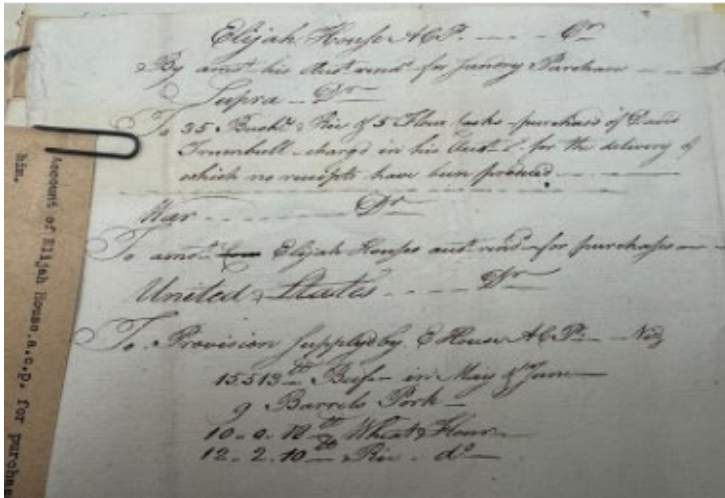 Elijah House A C P. - - - Cr
By amot. his Acot. rendd for Purchases - - -
Supra - Dr
To 35 Bushls Rie & 5 Flour Casks purchasd of David
Trumbull - chargd in his Acot. for the delivery of
which no receipts have been produced - - -
War - - - - - Dr
To amot. Elijah Houses acot. rendd for purchases - - -
United States - - - - Dr
To Provision supplyd by E House A C P. - Viz
15513 lb Beef - in May & June
9 Barrels Pork -
10 - 0 - 18 lb Wheat Flour -
12 - 2 - 10 Do Rie - do
Account of Elijah House.a.c.p. for purchas
him.